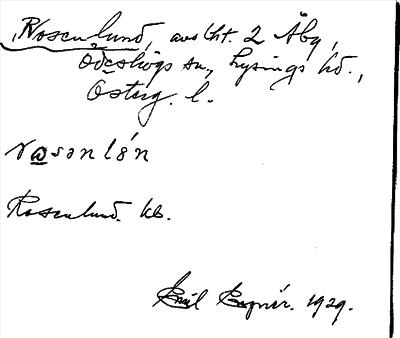 Rosenlund, avs lht. 2 Åby,
Ödeshögs sn., Lysings hd.,
Österg. l.
rosənlɵ́n
Rosenlund. kb.
Emil 1929.